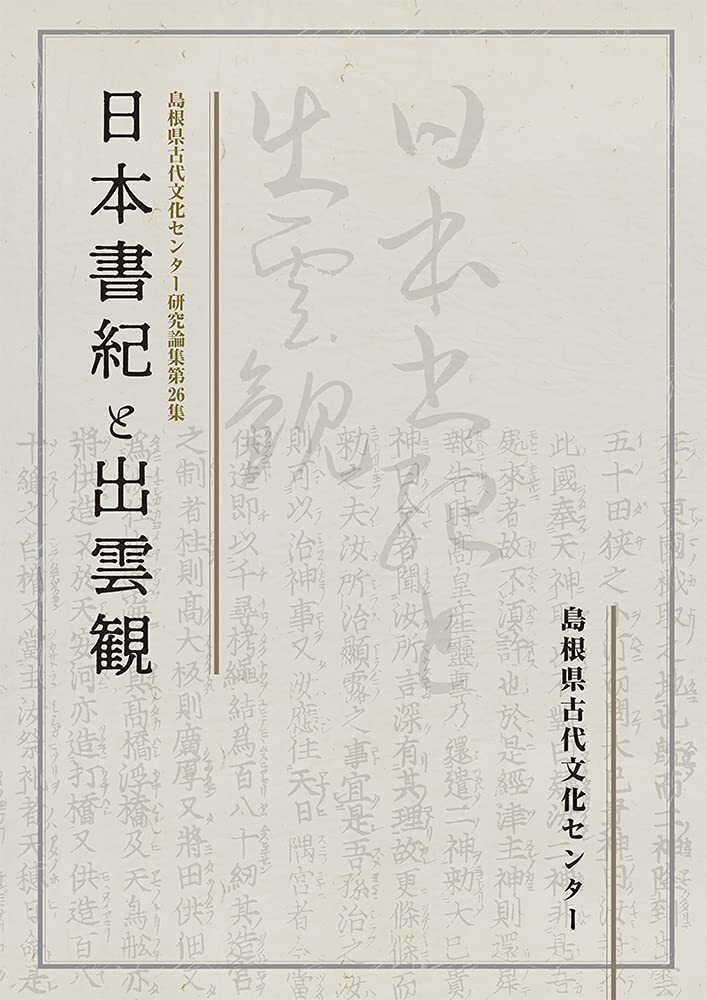 島根県古代文化センター研究論集第26集
日本書紀と出雲観
島根県古代文化センター
日本書紀と
出雲観
東國檝取之地也即而二神降到出雲
五十田狹之小汀而問大己貴神曰汝
此國奉天神
處來者故不須許也於是經津主神則還昇
報告時高皇産靈尊乃還遣二神勅大己貴
神曰今者聞汝所言深有其理故更條條而
勅之夫汝所治顯露之事宜是吾孫治之汝
則可以治神事又汝應住天日隅宮者今當
供造即以千尋栲繩結爲百八十紉其造宮
之制者柱則高大板則廣厚又將田供佃又
具高橋浮橋及天鳥船亦
將供造又於天安河亦造打橋又供造百八
十縫之白楯又當主汝祭祀者天穗日命是